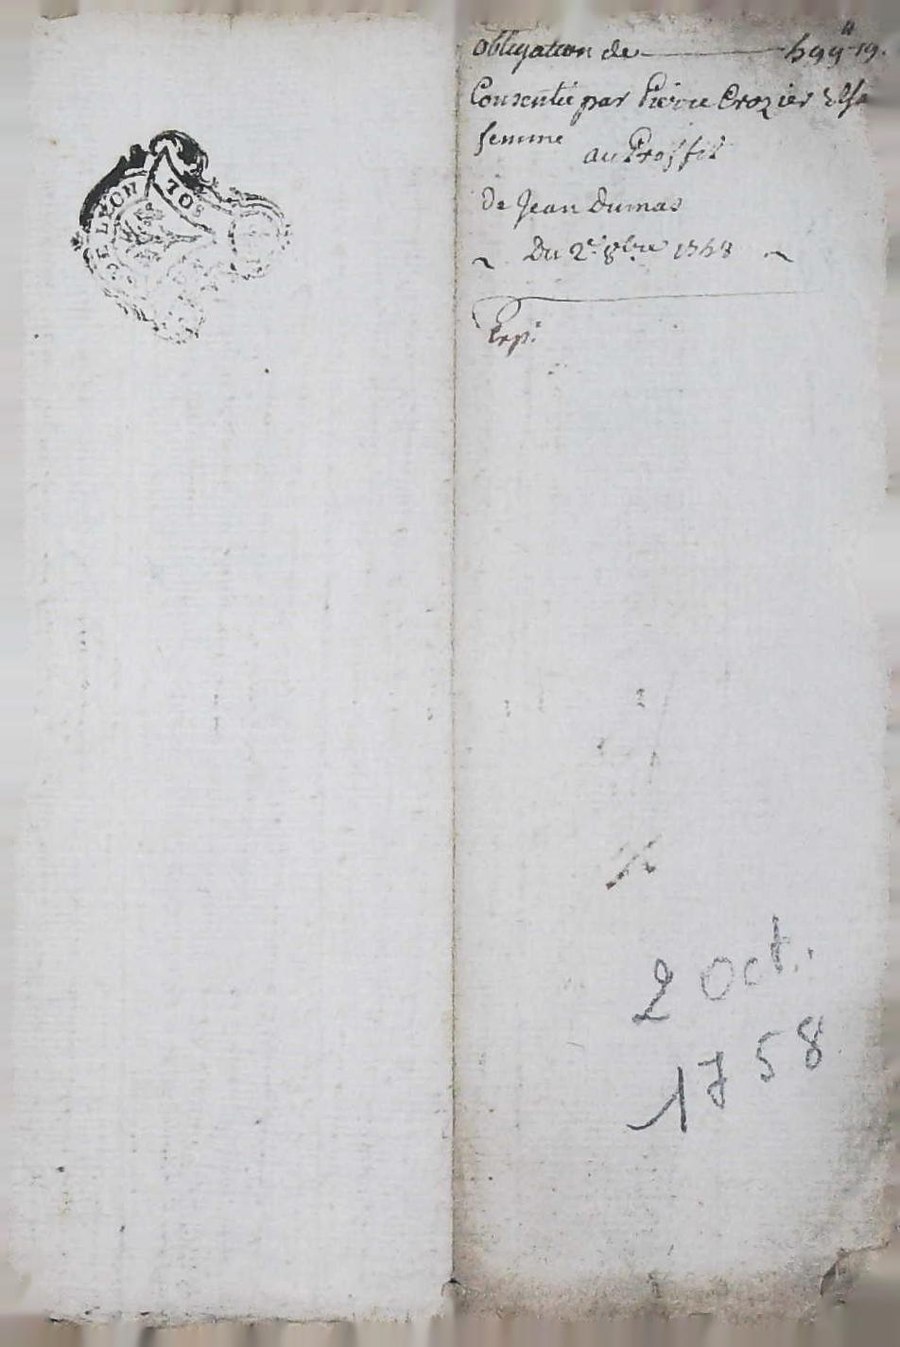 DE LYON
70s
obligation de 599₶ 19.
Consentie par Pierre Crozier & Sa
femme
au Proffit
de Jean Dumas
Du 2e 8bre 1758
Exp.
2 Oct.
1758